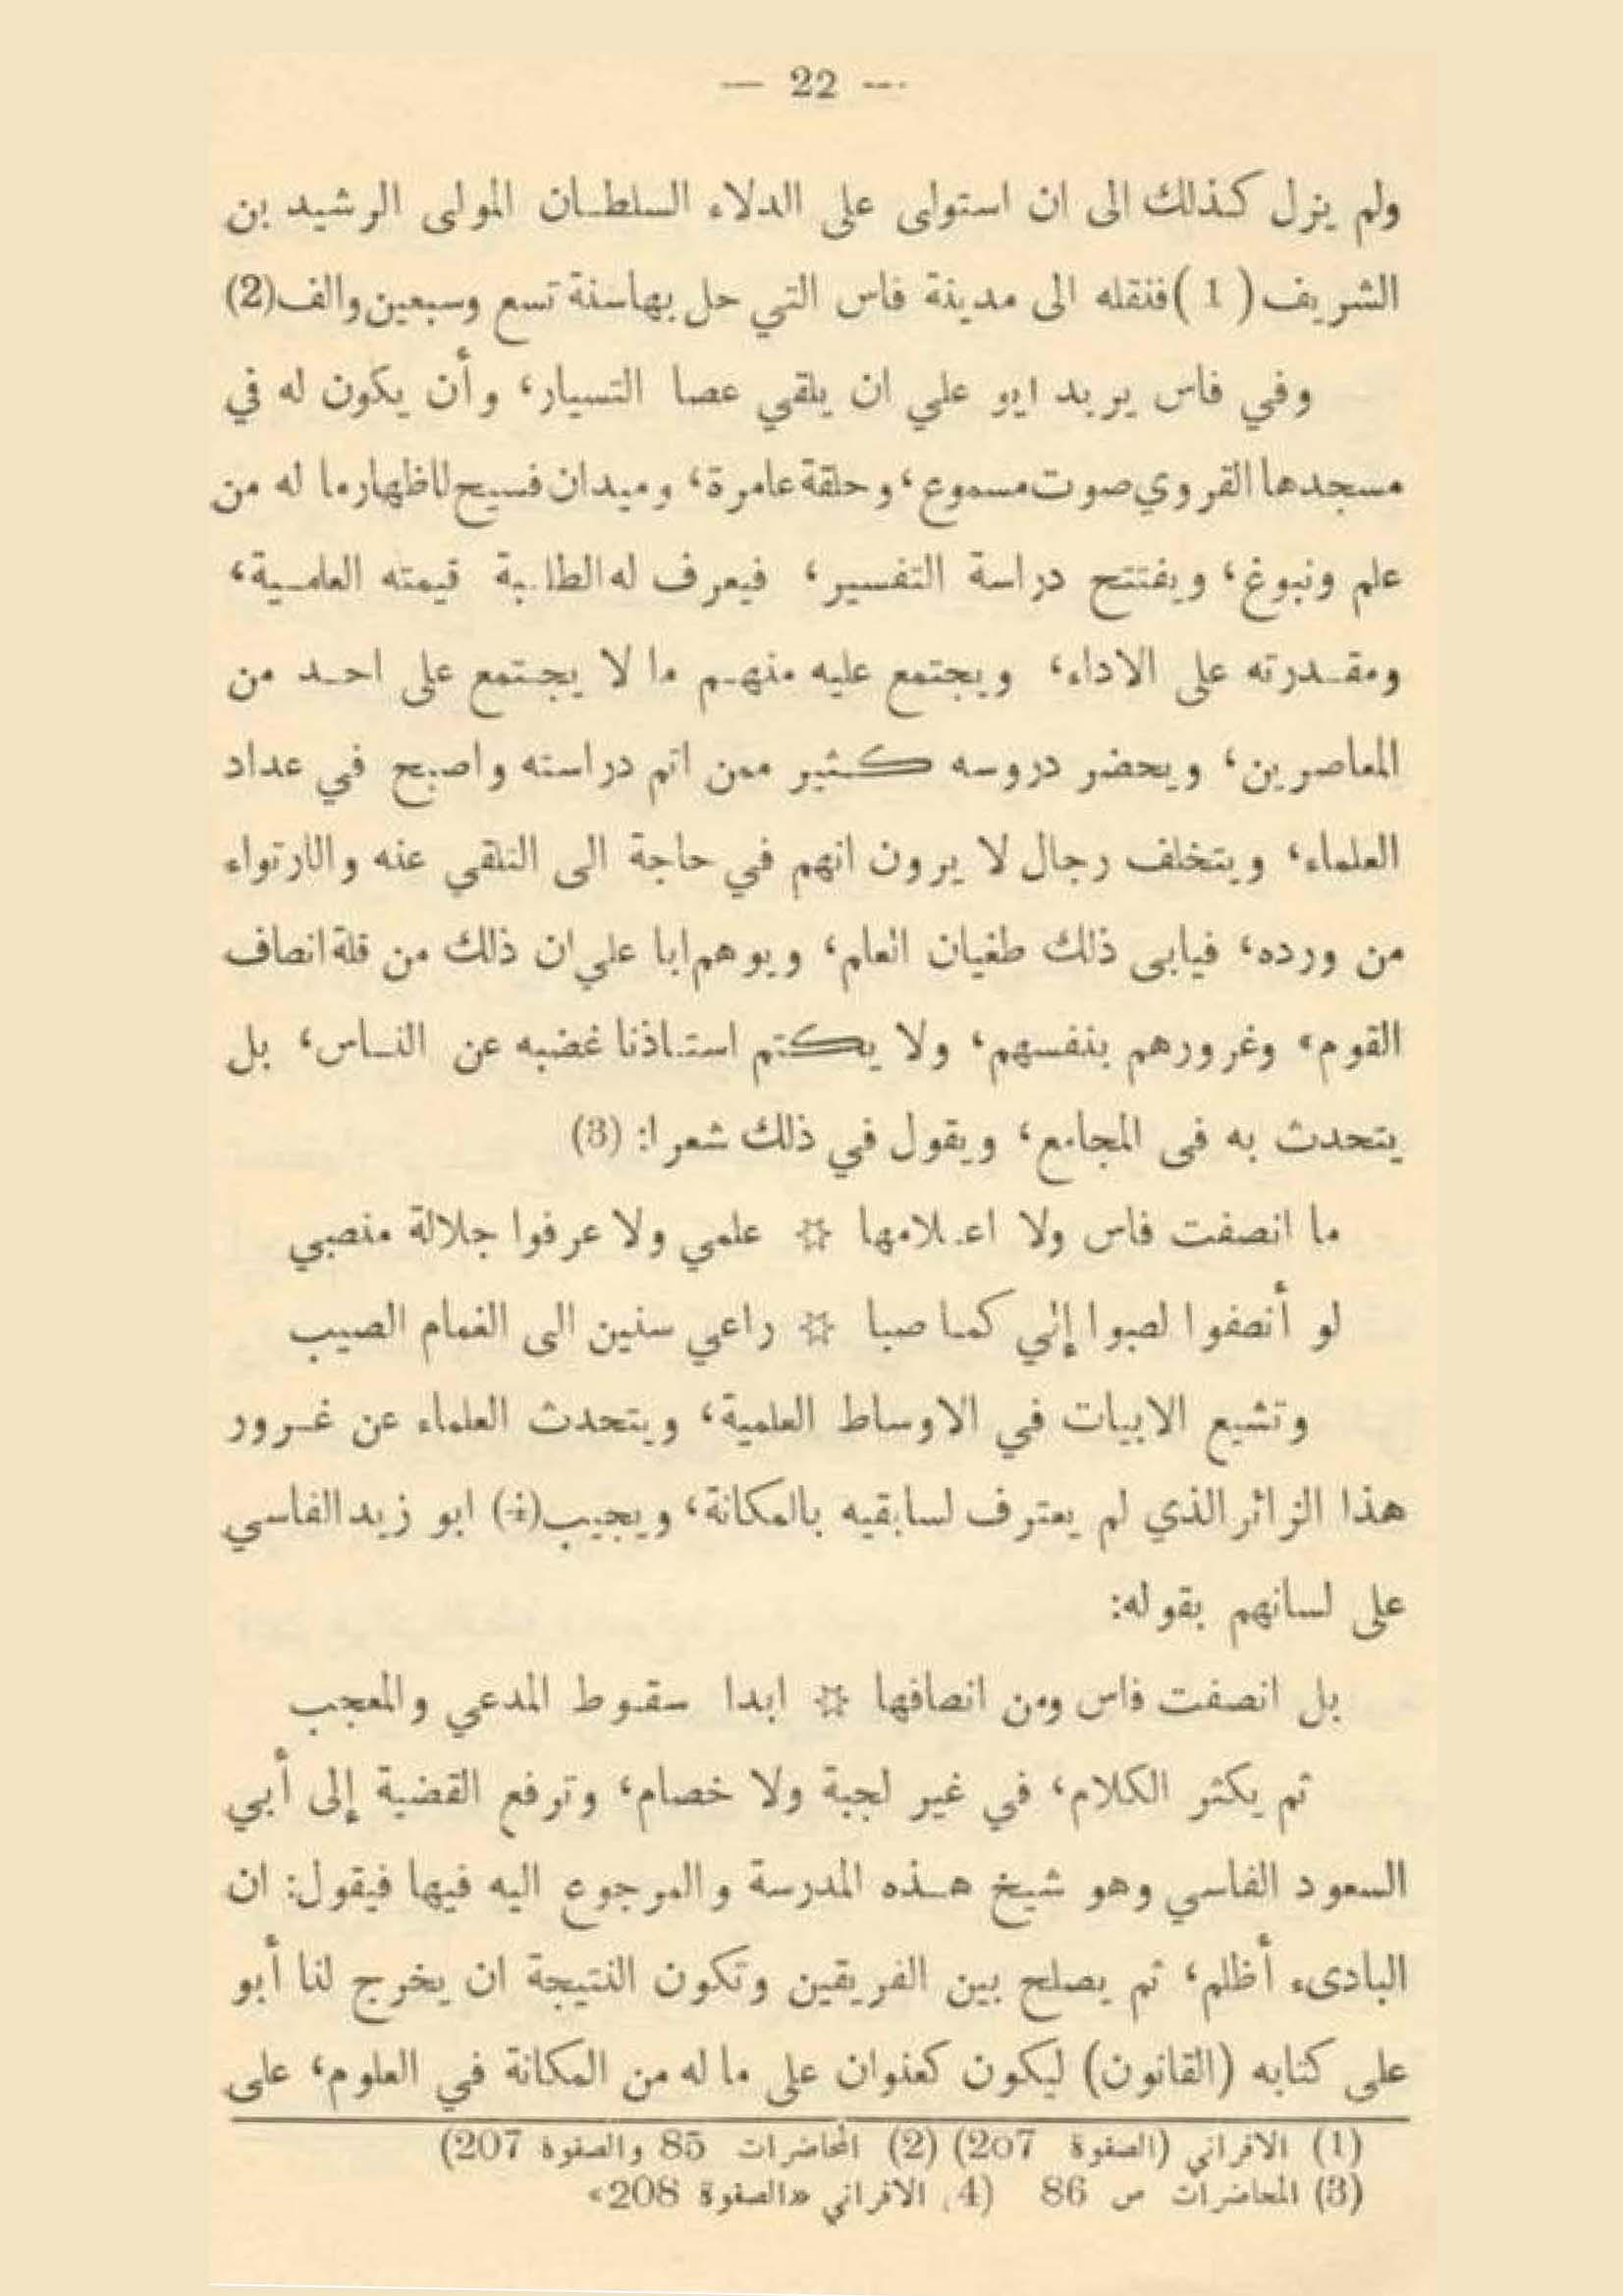 — 22 —
ولم يزل كذلك الى ان استولى على الدلاء السلطان المولى الرشيد بن
الشريف (1) فنقله الى مدينة فاس التي حل بها سنة تسع وسبعين والف (2)
وفي فاس يريد ابو علي ان يلقي عصا التسيار، وأن يكون له في
مسجدها القروي صوت مسموع، وحلقة عامرة، وميدان فسيح لاظهار ما له من
علم ونبوغ، ويفتتح دراسة التفسير، فيعرف له الطلبة قيمته العلمية،
ومقدرته على الاداء، ويجتمع عليه منهم ما لا يجتمع على احد من
المعاصرين، ويحضر دروسه كثير ممن اتم دراسته واصبح في عداد
العلماء، ويتخلف رجال لا يرون انهم في حاجة الى التلقي عنه والارتواء
من ورده، فيابى ذلك طغيان العلم، ويوهم ابا علي ان ذلك من قلة انصاف
القوم، وغرورهم بنفسهم، ولا يكتم استاذنا غضبه عن الناس، بل
يتحدث به فى المجامع، ويقول في ذلك شعرا: (3)
ما انصفت فاس ولا اعلامها ۞ علمي ولا عرفوا جلالة منصبي
لو أنصفوا لصبوا إلي كما صبا ۞ راعي سنين الى الغمام الصيب
وتشيع الابيات في الاوساط العلمية، ويتحدث العلماء عن غرور
هذا الزائر الذي لم يعترف لسابقيه بالمكانة، ويجيب (4) ابو زيد الفاسي
على لسانهم بقوله:
بل انصفت فاس ومن انصافها ۞ ابدا سقوط المدعي والمعجب
تم يكثر الكلام، في غير لجبة ولا خصام، وترفع القضية إلى أبي
السعود الفاسي وهو شيخ هذه المدرسة والمرجوع اليه فيها فيقول: ان
البادىء أظلم، تم يصلح بين الفريقين وتكون النتيجة ان يخرج لنا أبو
على كتابه (القانون) ليكون كعنوان على ما له من المكانة في العلوم، على
(1) الافراني (الصفوة 207) (2) المحاضرات 85 والصفوة 207)
(3) المحاضرات ص 86 (4) الافراني «الصفوة 208»